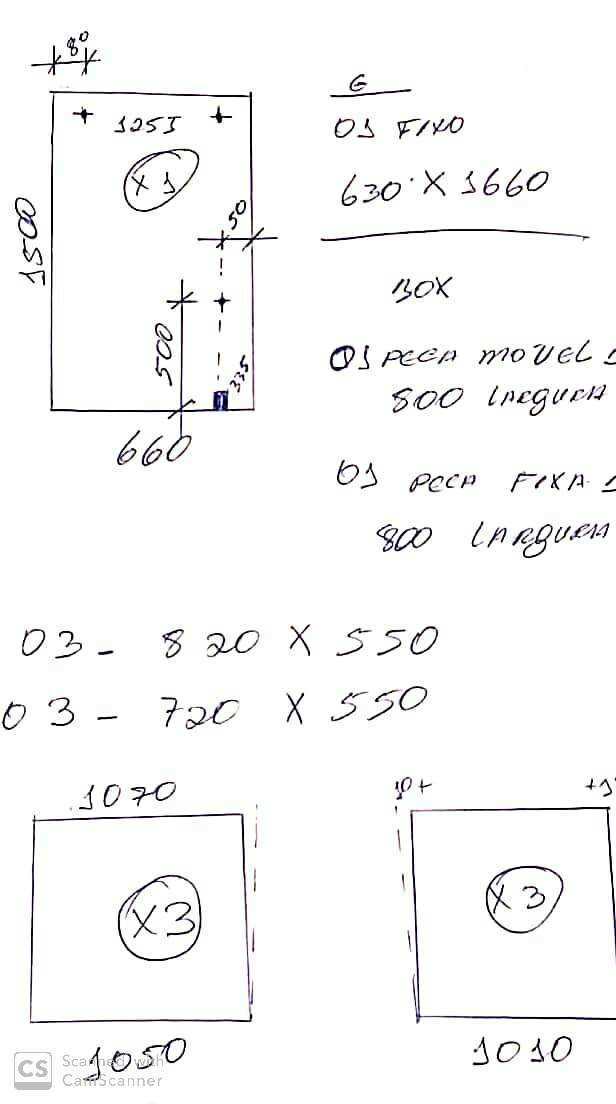 80
125I
X1
1500
50
500
335
660
6
01 FIXO
630 X 1660
BOX
01 PECA MOVEL
800 LARGURA
01 PECA FIXA
800 LARGURA
03 - 820 X 550
03 - 720 X 550
1070
X3
1050
10+
X3
1010
CS
Scanned with
CamScanner